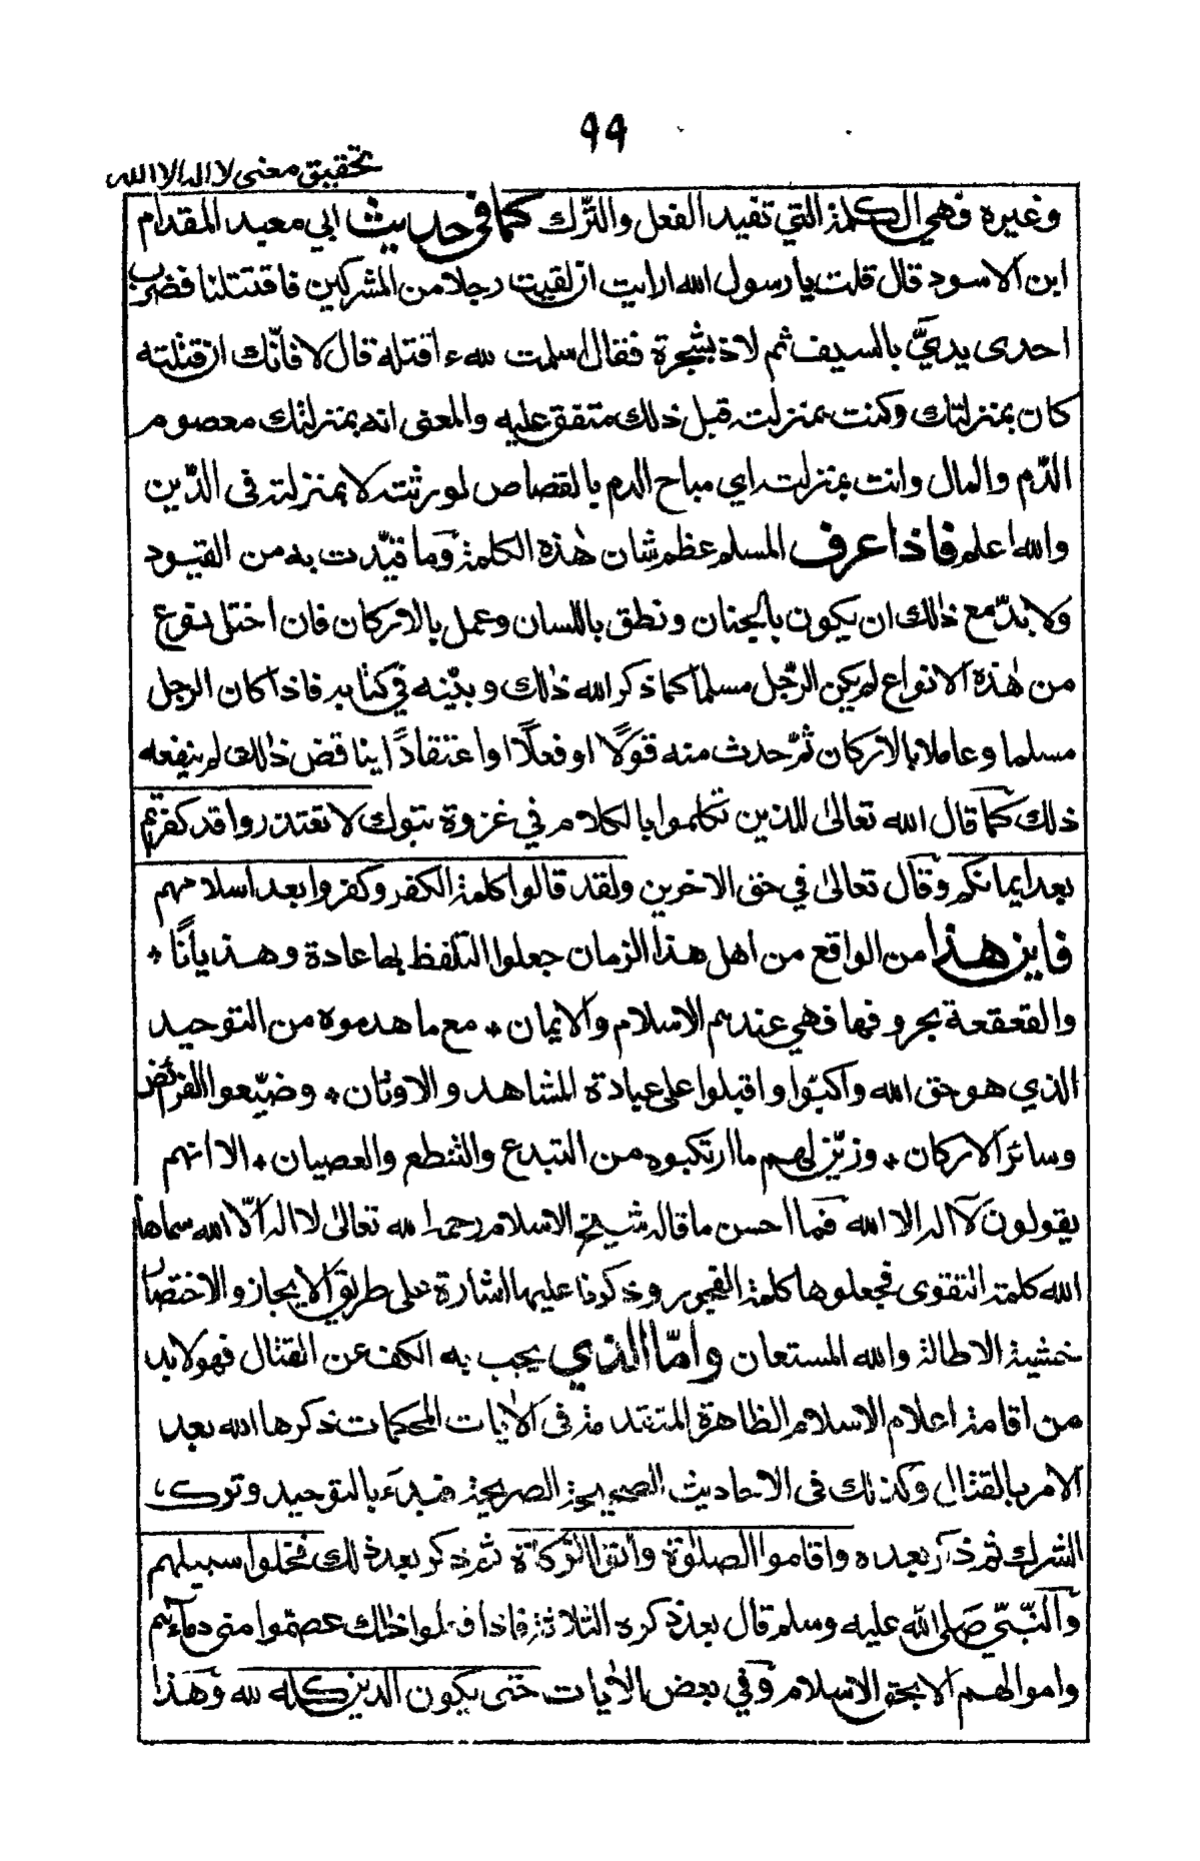 ٩٩
تحقيق معنى لا اله الا الله
وغيره فهي الكلمة التي تفيد الفعل والتّرك كما في حديث ابي معبد المقدام
ابن الاسود قال قلت يا رسول الله ارايت ان لقيت رجلا من المشركين فاقتتلنا فضرب
احدى يديّ بالسيف ثم لاذ بشجرة فقال اسلمت لله ءاقتله قال لا فانّك ان قتلته
كان بمنزلتك وكنت بمنزلته قبل ذلك متفق عليه والمعنى انه بمنزلتك معصوم
الدّم والمال وانت بمنزلته اي مباح الدم بالقصاص لورثته لا بمنزلته في الدّين
والله اعلم فاذا عرف المسلم عظم شان هٰذه الكلمة وما قيّدت به من القيود
ولا بدّ مع ذٰلك ان يكون بالجنان ونطق باللسان وعمل بالاركان فان اختل نوع
من هٰذه الانواع لم يكن الرّجل مسلما كما ذكر الله ذٰلك وبيّنه في كتابه فاذا كان الرجل
مسلما وعاملا بالاركان ثمّ حدث منه قولًا او فعلًا او اعتقادًا يناقض ذٰلك لم ينفعه
ذلك كما قال الله تعالىٰ للذين تكلموا بالكلام في غزوة تبوك لا تعتذروا قد كفرتم
بعد ايمانكم وقال تعالىٰ في حق الاخرين ولقد قالوا كلمة الكفر وكفروا بعد اسلامهم
فاين هذا من الواقع من اهل هذا الزمان جعلوا التلفظ بها عادة وهذيانًا *
والقعقعة بحروفها فهي عندهم الاسلام والايمان * مع ما هدموه من التوحيد
الذي هو حق الله واكبّوا واقبلوا على عبادة المشاهد والاوثان * وضيّعوا الفرائض
وسائر الاركان * وزيّن لهم ما ارتكبوه من التبدع والتنطع والعصيان * الا انهم
يقولون لا اله الا الله فما احسن ما قاله شيخ الاسلام رحمه الله تعالىٰ لا اله الّا الله سماها
الله كلمة التقوى فجعلوها كلمة الفجور وذكرنا عليها اشارة على طريق الايجاز والاختصار
خشية الاطالة والله المستعان وامّا الذي يجب به الكف عن القتال فهو لا بد
من اقامة اعلام الاسلام الظاهرة المتقدمة في الاٰيات المحكمات ذكرها الله بعد
الامر بالقتال وكذلك في الاحاديث الصحيحة الصريحة فبدء بالتوحيد وترك
الشرك ثم ذكر بعده واقاموا الصلٰوة واٰتوا الزكاة ثم ذكر بعد ذلك فخلوا سبيلهم
والنّبيّ صَلى الله عليه وسلم قال بعد ذكره الثلاثة فاذا فعلوا ذٰلك عصموا مني دماءهم
واموالهم الا بحق الاسلام وفي بعض الاٰيات حتى يكون الدين كله لله وهٰذا